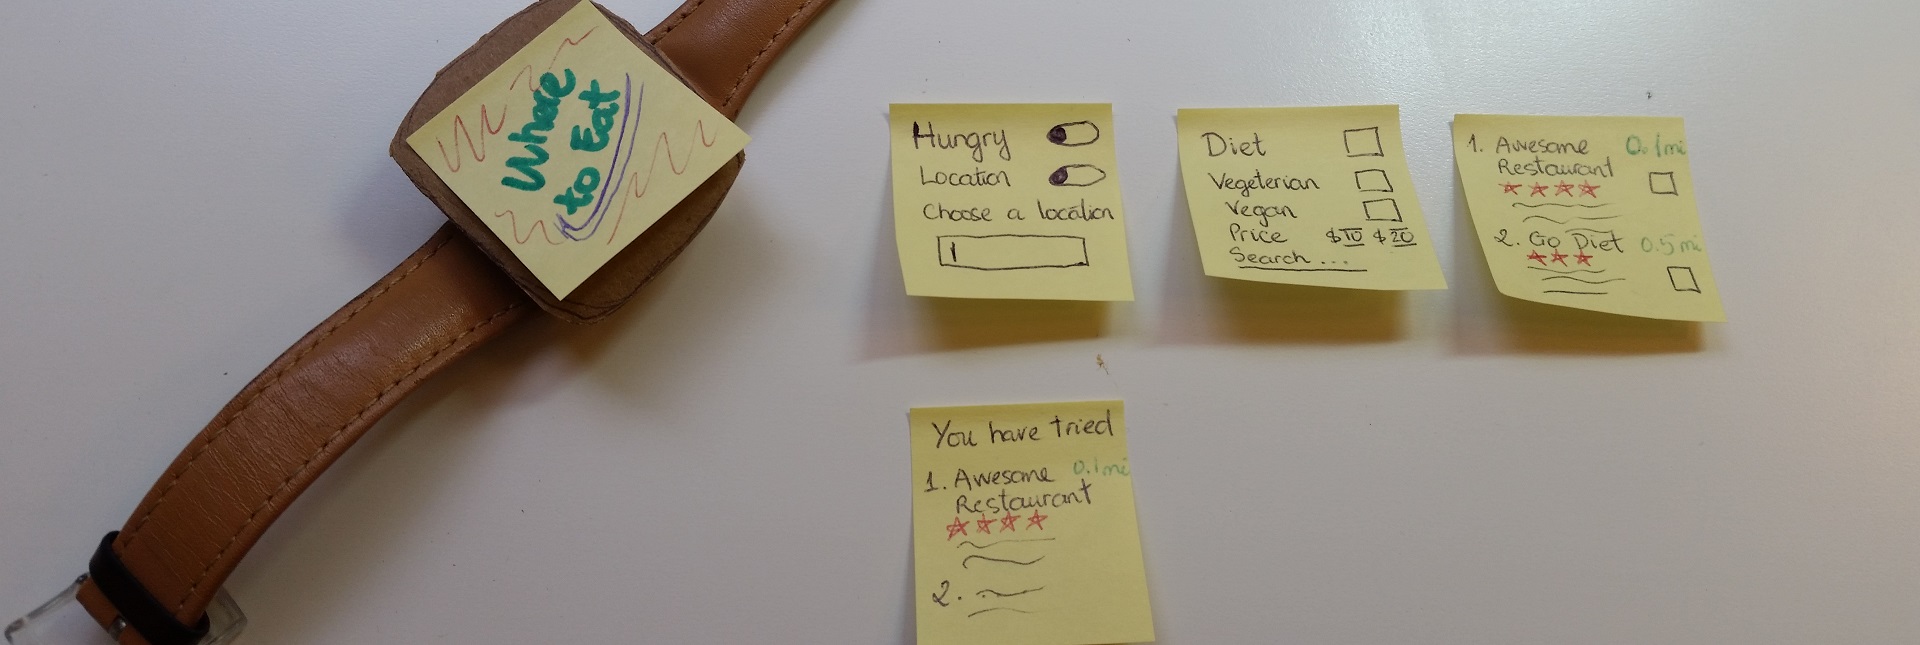 Where
to Eat
Hungry
Location
Choose a location
Diet
Vegeterian
Vegan
Price $10 $20
Search ...
1. Awesome 0.1mi
Restaurant
2. Go Diet 0.5mi
You have tried
1. Awesome 0.1mi
Restaurant
2.